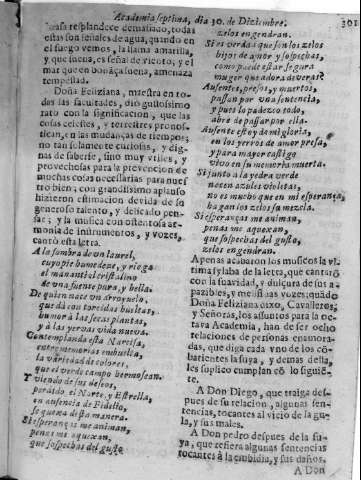 Academia septima, dia 30. de Diziembre. 301
rasa resplandece demasiado, todas
estas son señales de agua, quando en
el fuego vemos, la llama amarilla,
y que suena, es señal de viento, y el
mar que en bonãça suena, amenaza
tempestad.
Doña Feliziana, maestra en to-
das las facultades, dio gustosissimo
rato con la significacion, que las
cosas celestes, y terrestres pronos-
tican, en las mudanças de tiempos;
no tan solamente curiosas, y dig-
nas de saberse, sino muy vtiles, y
provechosas para la prevencion de
muchas cosas necessarias para nues
tro bien; con grandissimo aplauso
hizieron estimacion devida de su
generoso talento, y delicado pen-
sar; y la musica con ostentosa ar-
monia de instrumentos, y vozes,
cantò esta letra.
A la sombra de vn laurel,
cuyo pie humedece, y riega
el manantial cristalino
de vna fuente pura, y bella.
De quien nace vn arroyuelo,
que dà con torcidas bueltas,
humor à las secas plantas,
y à las yervas vida nueva.
Contemplando està Narcisa,
entre memorias embuelta,
la variedad de colores,
que el verde campo hermosean.
Y viendo de sus deseos,
perdido el Norte, y Estrella,
en ausencia de Fidelio,
se quexa desta manera.
Si esperanças me animan,
penas me aquexan,
que sospechas del gusto
zelos engendran.
Si es verdad que son los zelos
hijos de amor y sospechas,
como puede estar segura
muger que adora de veras?
Ausentes, presos, y muertos,
passan por vna sentencia,
y pues lo padezco todo,
abrè de passar por ella.
Ausente estoy de mi gloria,
en los yerros de amor presa,
y para mayor castigo
vivo en su memoria muerta.
Si junto a la yedra verde
nacen azules violetas,
no es mucho que en mi esperança,
haga▪ los zelos su mezcla.
Si esperanças me animan,
penas me aquexan,
que sospechas del gusto,
zelos engendran.
Apenas acabaron los musicos la vl
tima sylaba de la letra, que cantarõ
con la suavidad, y dulçura de sus a-
pazibles, y mensas vozes; quãdo
Doña Feliziana dixo, Cavalleros,
y Señoras, los assuntos para la oc-
tava Academia, han de ser ocho
relaciones de personas enamora-
das, que diga cada vno de los cõ-
batientes la suya, y demas della
les suplico cumplan cõ lo siguiẽ-
te.
A Don Diego, que traiga des-
pues de su relacion, algunas sen-
tencias, tocantes al vicio de la gu-
la, y sus males.
A Don pedro despues de la su-
ya, que refiera algunas sentencias
tocantes à la embidia, y sus daños.
A Don